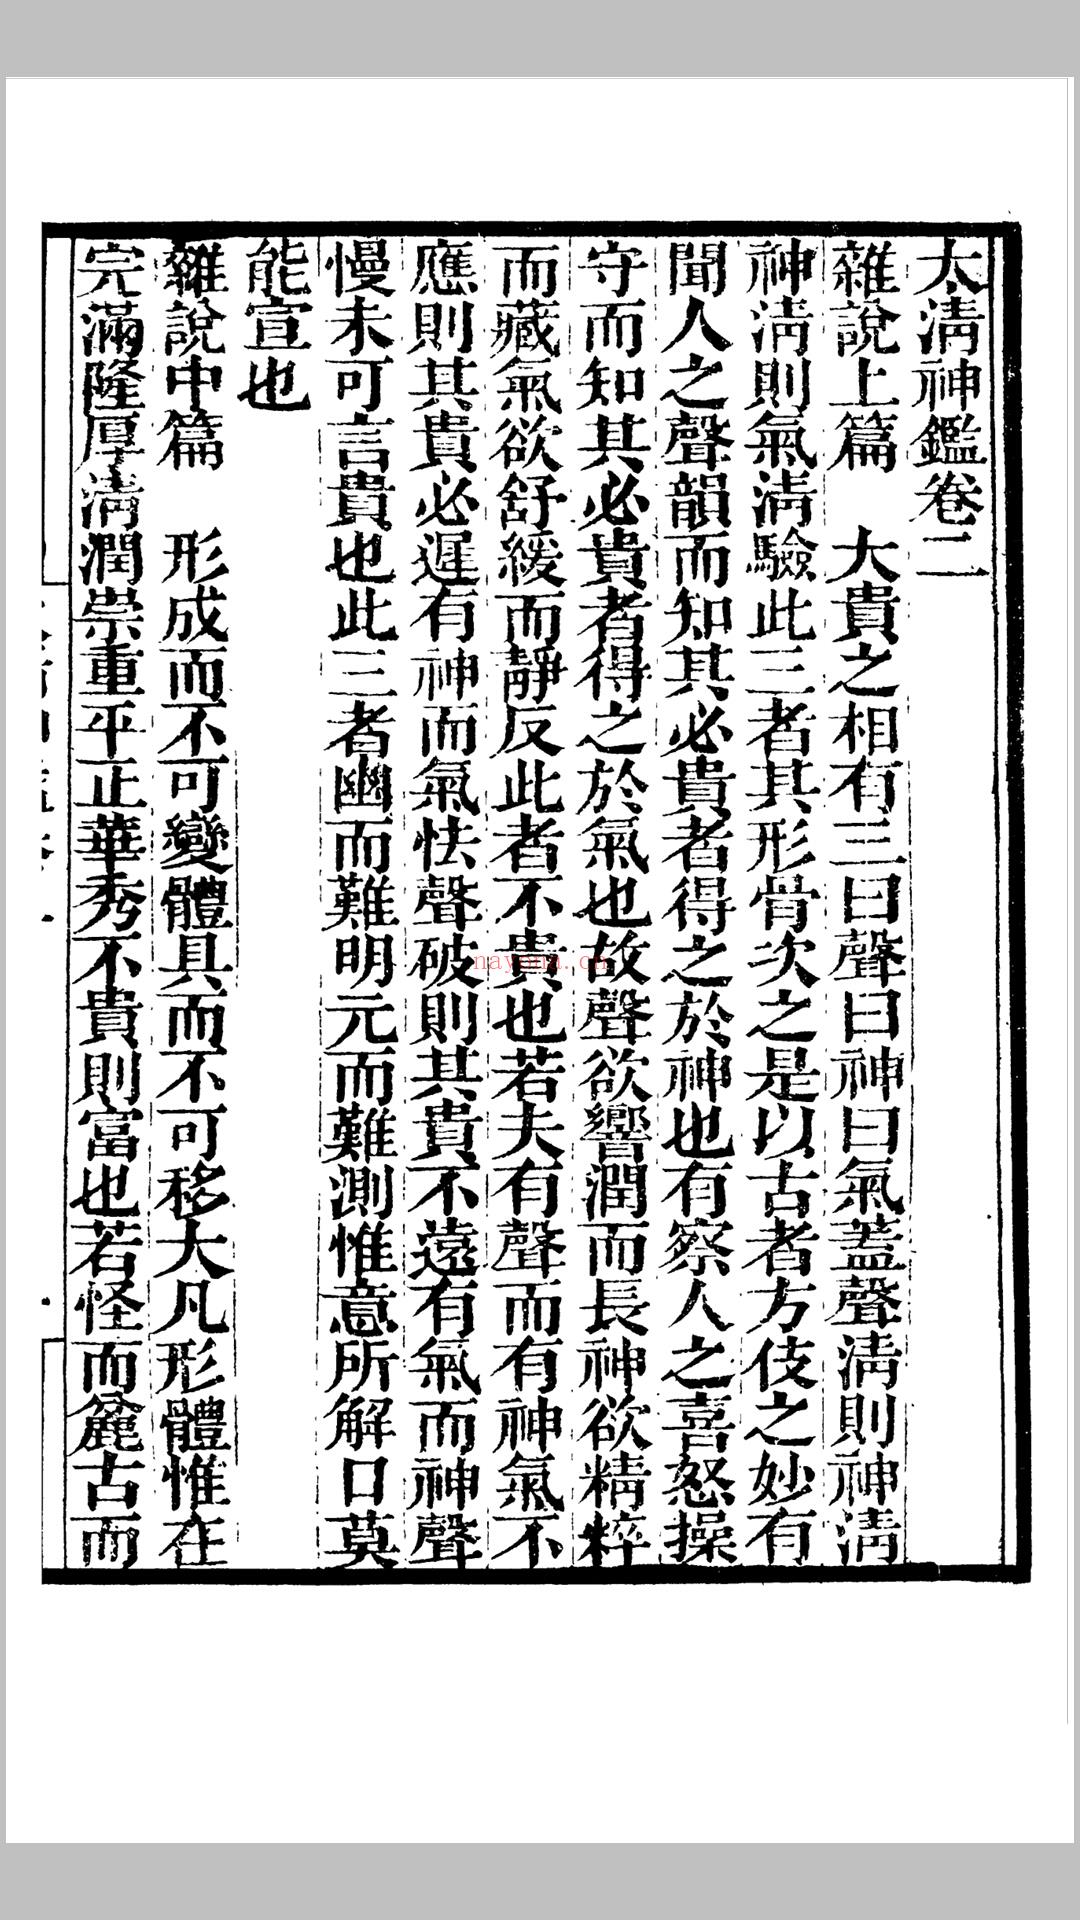 太淸神鑑卷二
雜說上篇　大貴之相有三曰聲曰神曰氣蓋聲淸則神淸
神淸則氣淸驗此三者其形骨次之是以古者方伎之妙有
聞人之聲韻而知其必貴者得之於神也有察人之喜怒操
守而知其必貴者得之於氣也故聲欲響潤而長神欲精粹
而藏氣欲舒緩而靜反此者不貴也若夫有聲而有神氣不
應則其貴必遲有神而氣怯聲破則其貴不遠有氣而神聲
慢未可言貴也此三者幽而難明元而難測惟意所解口莫
能宣也
雜說中篇　形成而不可變體具而不可移大凡形體惟在
完滿隆厚淸潤崇重平正華秀不貴則富也若怪而麄古而
nayona.cn